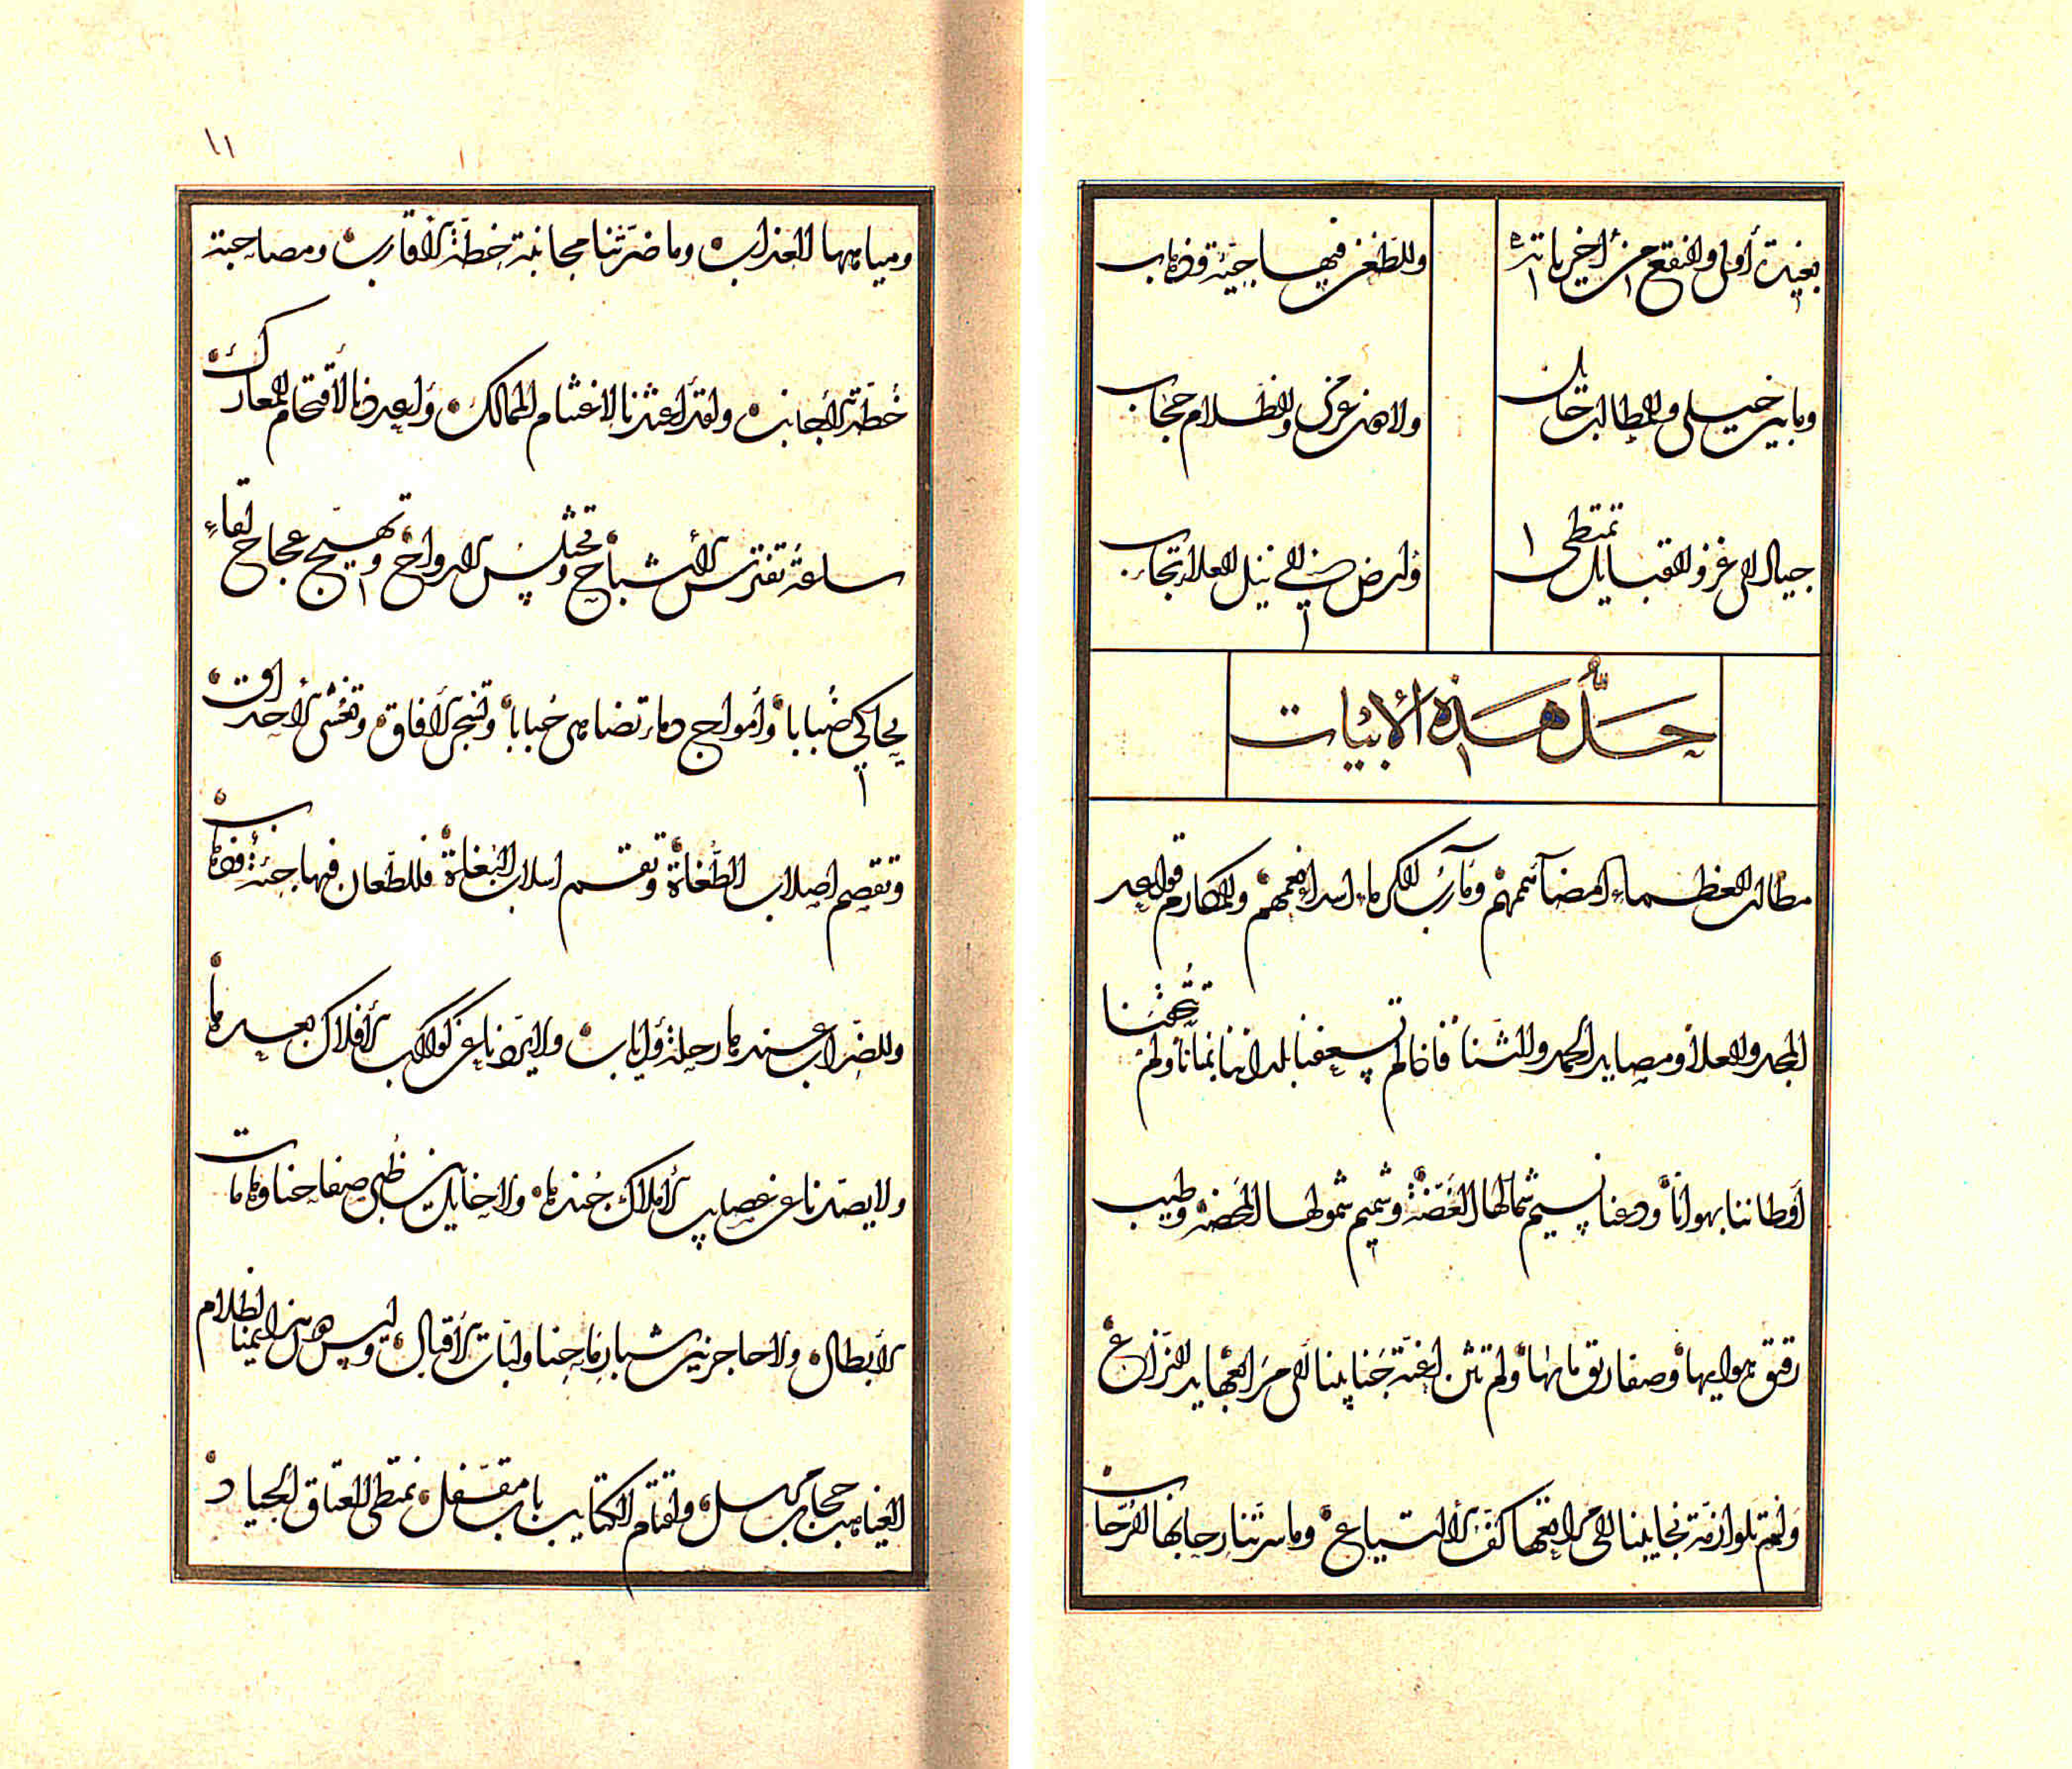 وللطعن فيها جيئة وذهاب
وما بين خيلي والمطالب حائل
ولا دون عزمي والظلام حجاب
جياد الى غزو القبايل تمتطى
وارض الى نيل العلا تجاب
حل هذه الأبيات
مطالب العظماء امضا هممهم ومآرب الكرماء اسدا نعمهم والمكارم قواعد
المجد والعلا ومصايد الحمد والثنا فاذا لم تسعفنا بلداننا بمنانا ولم تتحفنا
أوطاننا بهوانا ودعنا نسيم شمالها الغضة وشميم شمولها المحضة وطيب
رقيق هوايها وصفا ريق مايها ولم تثن اعنة جنايبنا الى المعاهد النزاع
ولم تلو ازمة نجايبنا الى مرابعها كف الالتياع وما سرتنا رحابها الرحاب
١١
ومياهها العذاب وما ضرتنا مجانبة خطة الأقارب ومصاحبة
خطة الأجانب ولقد اعتدنا لاغتنام الممالك واعددنا لاقتحام المعارك
ساعة تفترس الأشباح وتختلس الارواح وتهيج عجاج لقاء
يحاكي ضبابا وامواج دماء تضاهي حبابا الافاق وتغشى الاحداق
وتقصم اصلاب الطغاة وتقسم اسلاب البغاة فللطعان فيها جيئة وذهاب
وللضراب عندها رحلة واياب ولا يردنا عن كواكب أفلاك بعدها
ولا يصدنا عن عصايب أملاك جندها ولا حايل بين ظبى صفاحنا وهامات
الأبطال ولا حاجز بين شبا رماحنا ولبات الأقيال وليس من الظلام
الغياهب حجاب مسبل وقتام الكتايب باب مقفل نمتطي العتاق الجياد